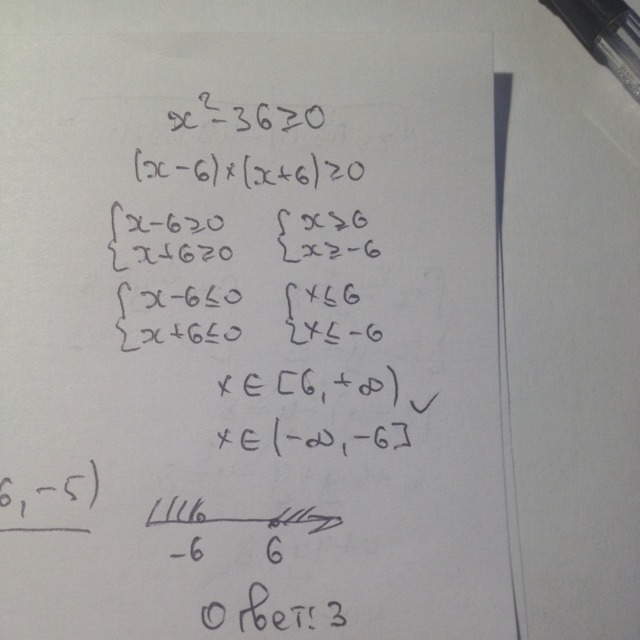 x² - 36 ≥ 0
(x-6)×(x+6) ≥ 0
{x-6≥0 {x≥6
{x+6≥0 {x≥-6
{x-6≤0 {x≤6
{x+6≤0 {x≤-6
x∈[6,+∞)
x∈(-∞,-6] ✓
6,-5)
-6 6
Ответ: 3